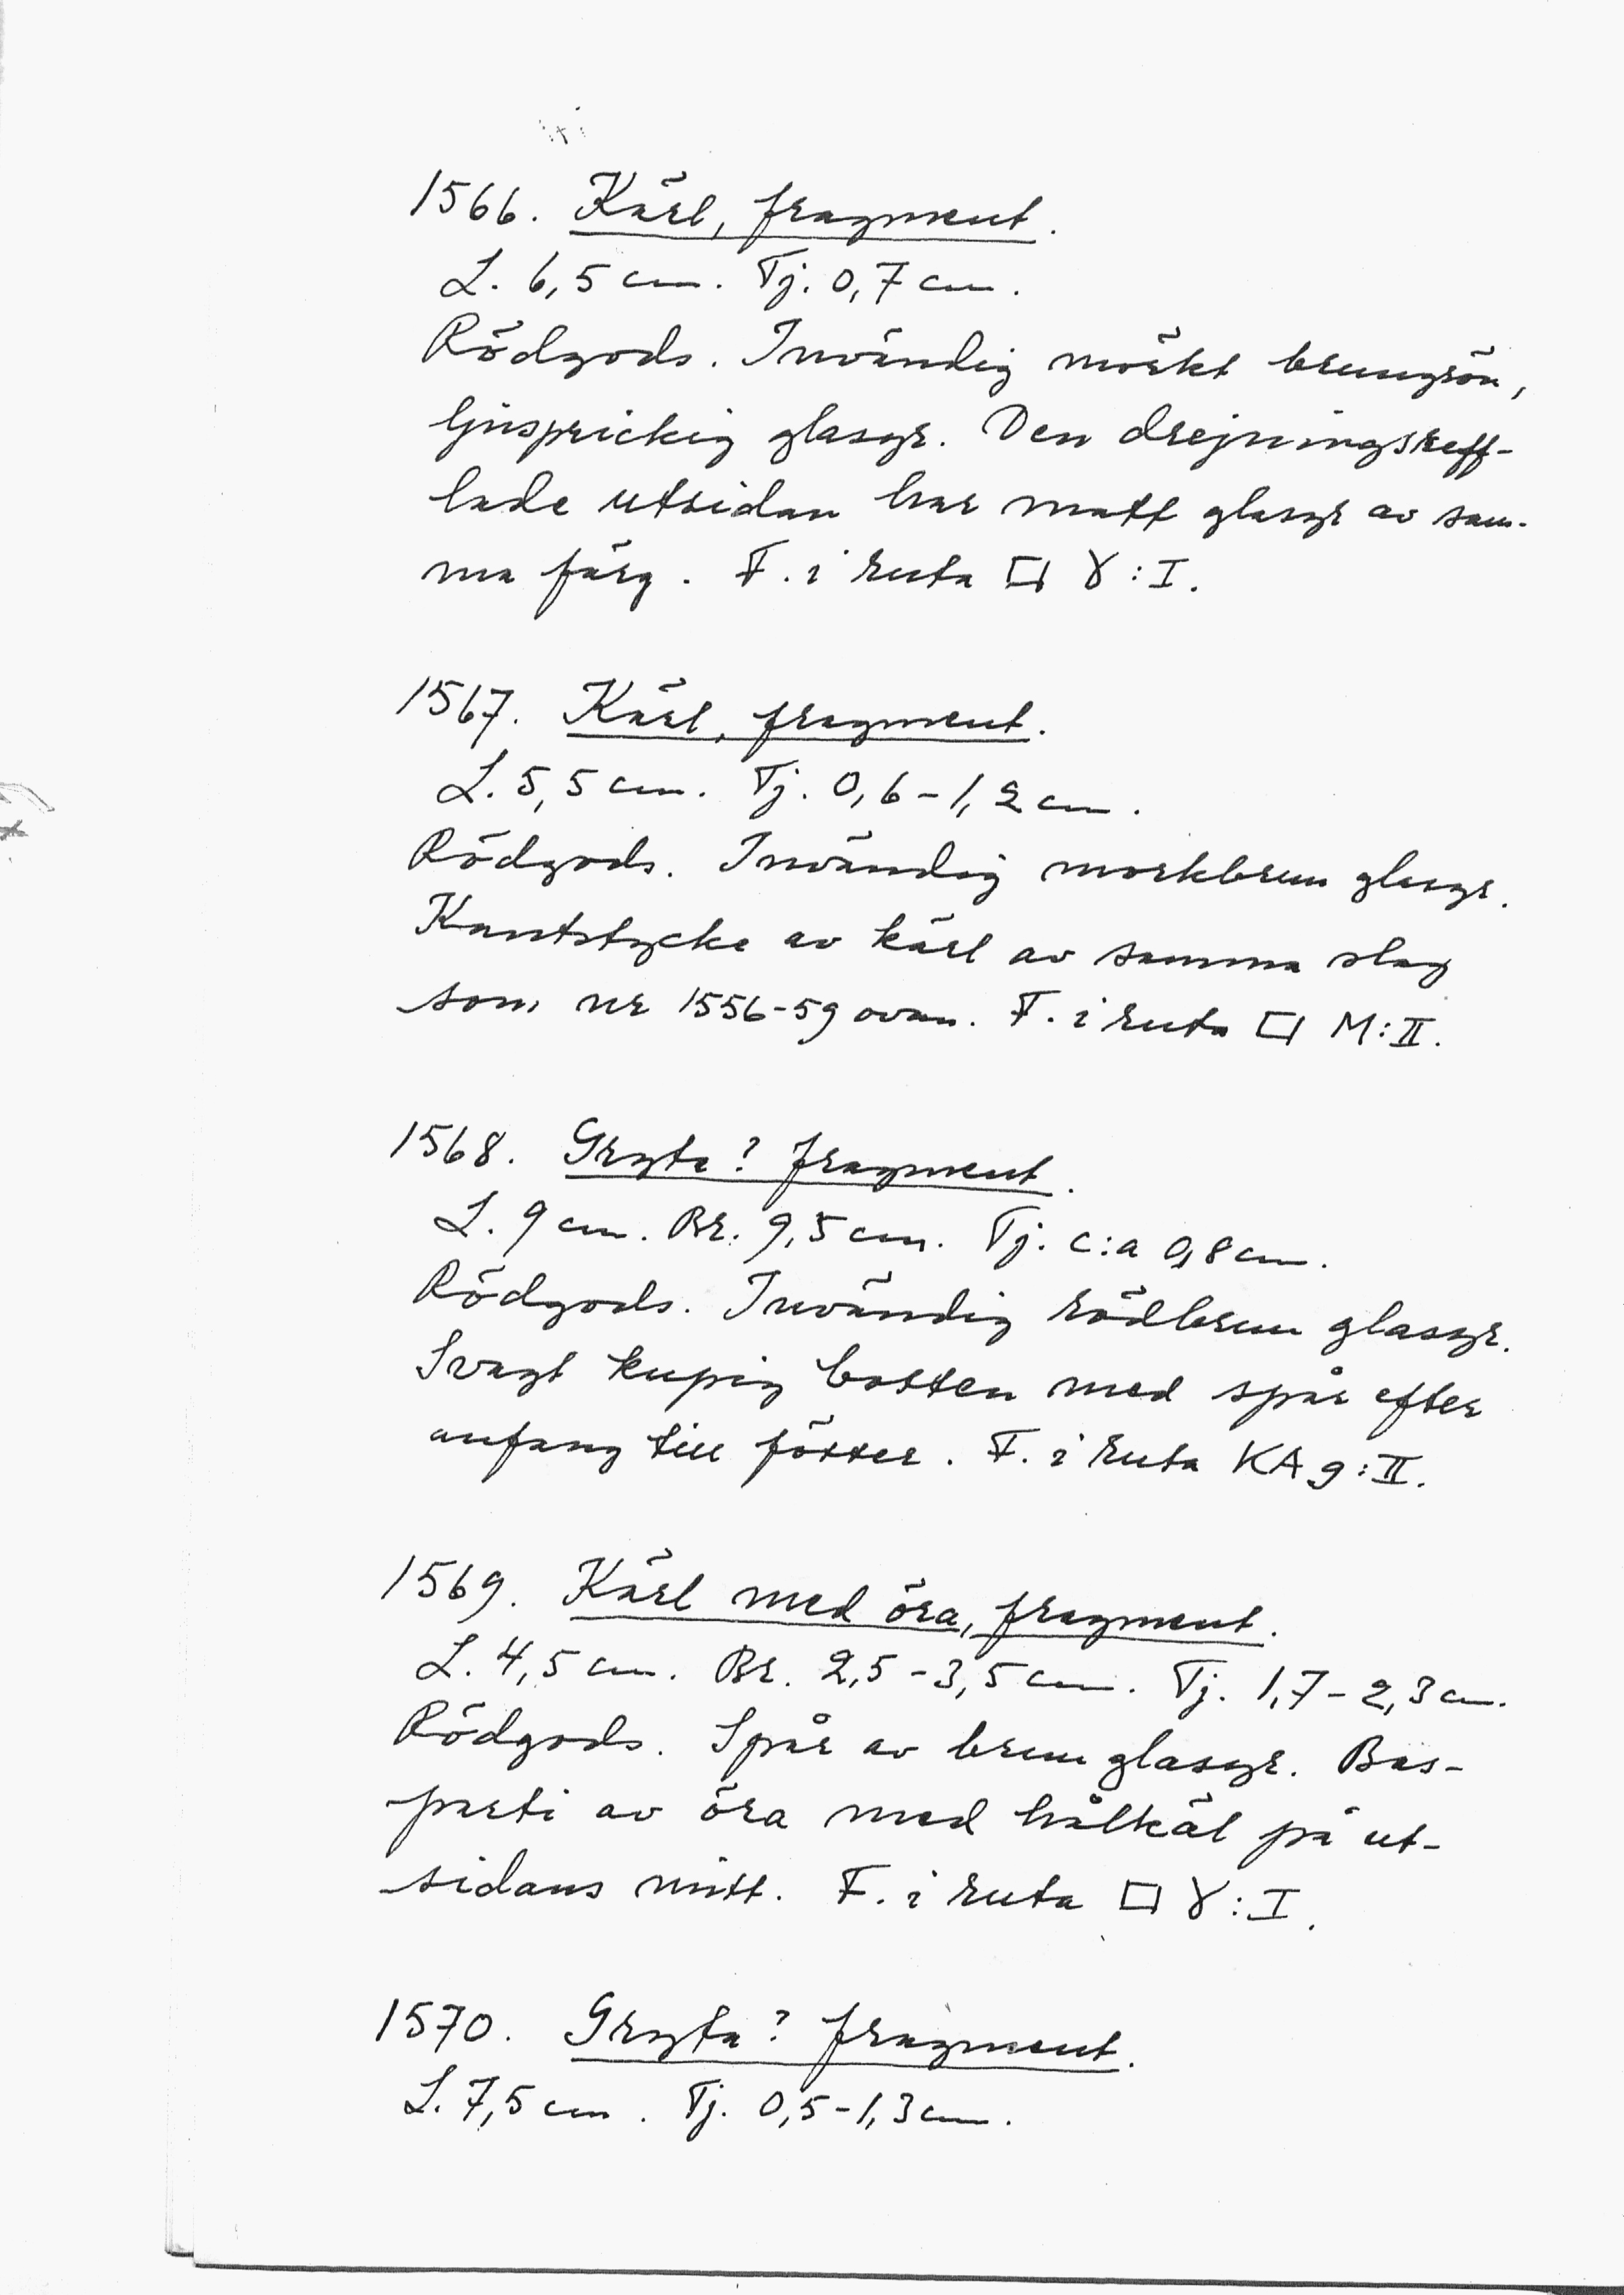 1566. Kärl, fragment.
L. 6,5 cm. Tj. 0,7 cm.
Rödgods. Invändig mörkt brungrön,
ljusprickig glasyr. Den drejningsreff-
lade utsidan har matt glasyr av sam-
ma färg. F. i ruta □ γ:I.
1567. Kärl, fragment.
L. 5,5 cm. Tj. 0,6-1,2 cm.
Rödgods. Invändig morkbrun glasyr.
Kantstycke av kärl av samma slag
som nr 1556-59 ovan. F. i ruta □ M:II.
1568. Gryta? fragment.
L. 9 cm. Br. 9,5 cm. Tj. c:a 0,8 cm.
Rödgods. Invändig rödbrun glasyr.
Svagt kupig botten med spår efter
anfang till fötter. F. i ruta KA9:II.
1569. Kärl med öra, fragment.
L. 4,5 cm. Br. 2,5-3,5 cm. Tj. 1,7-2,3 cm.
Rödgods. Spår av brun glasyr. Bas-
parti av öra med hålkäl på ut-
sidans mitt. F. i ruta □ γ:I.
1570. Gryta? fragment.
L. 7,5 cm. Tj. 0,5-1,3 cm.